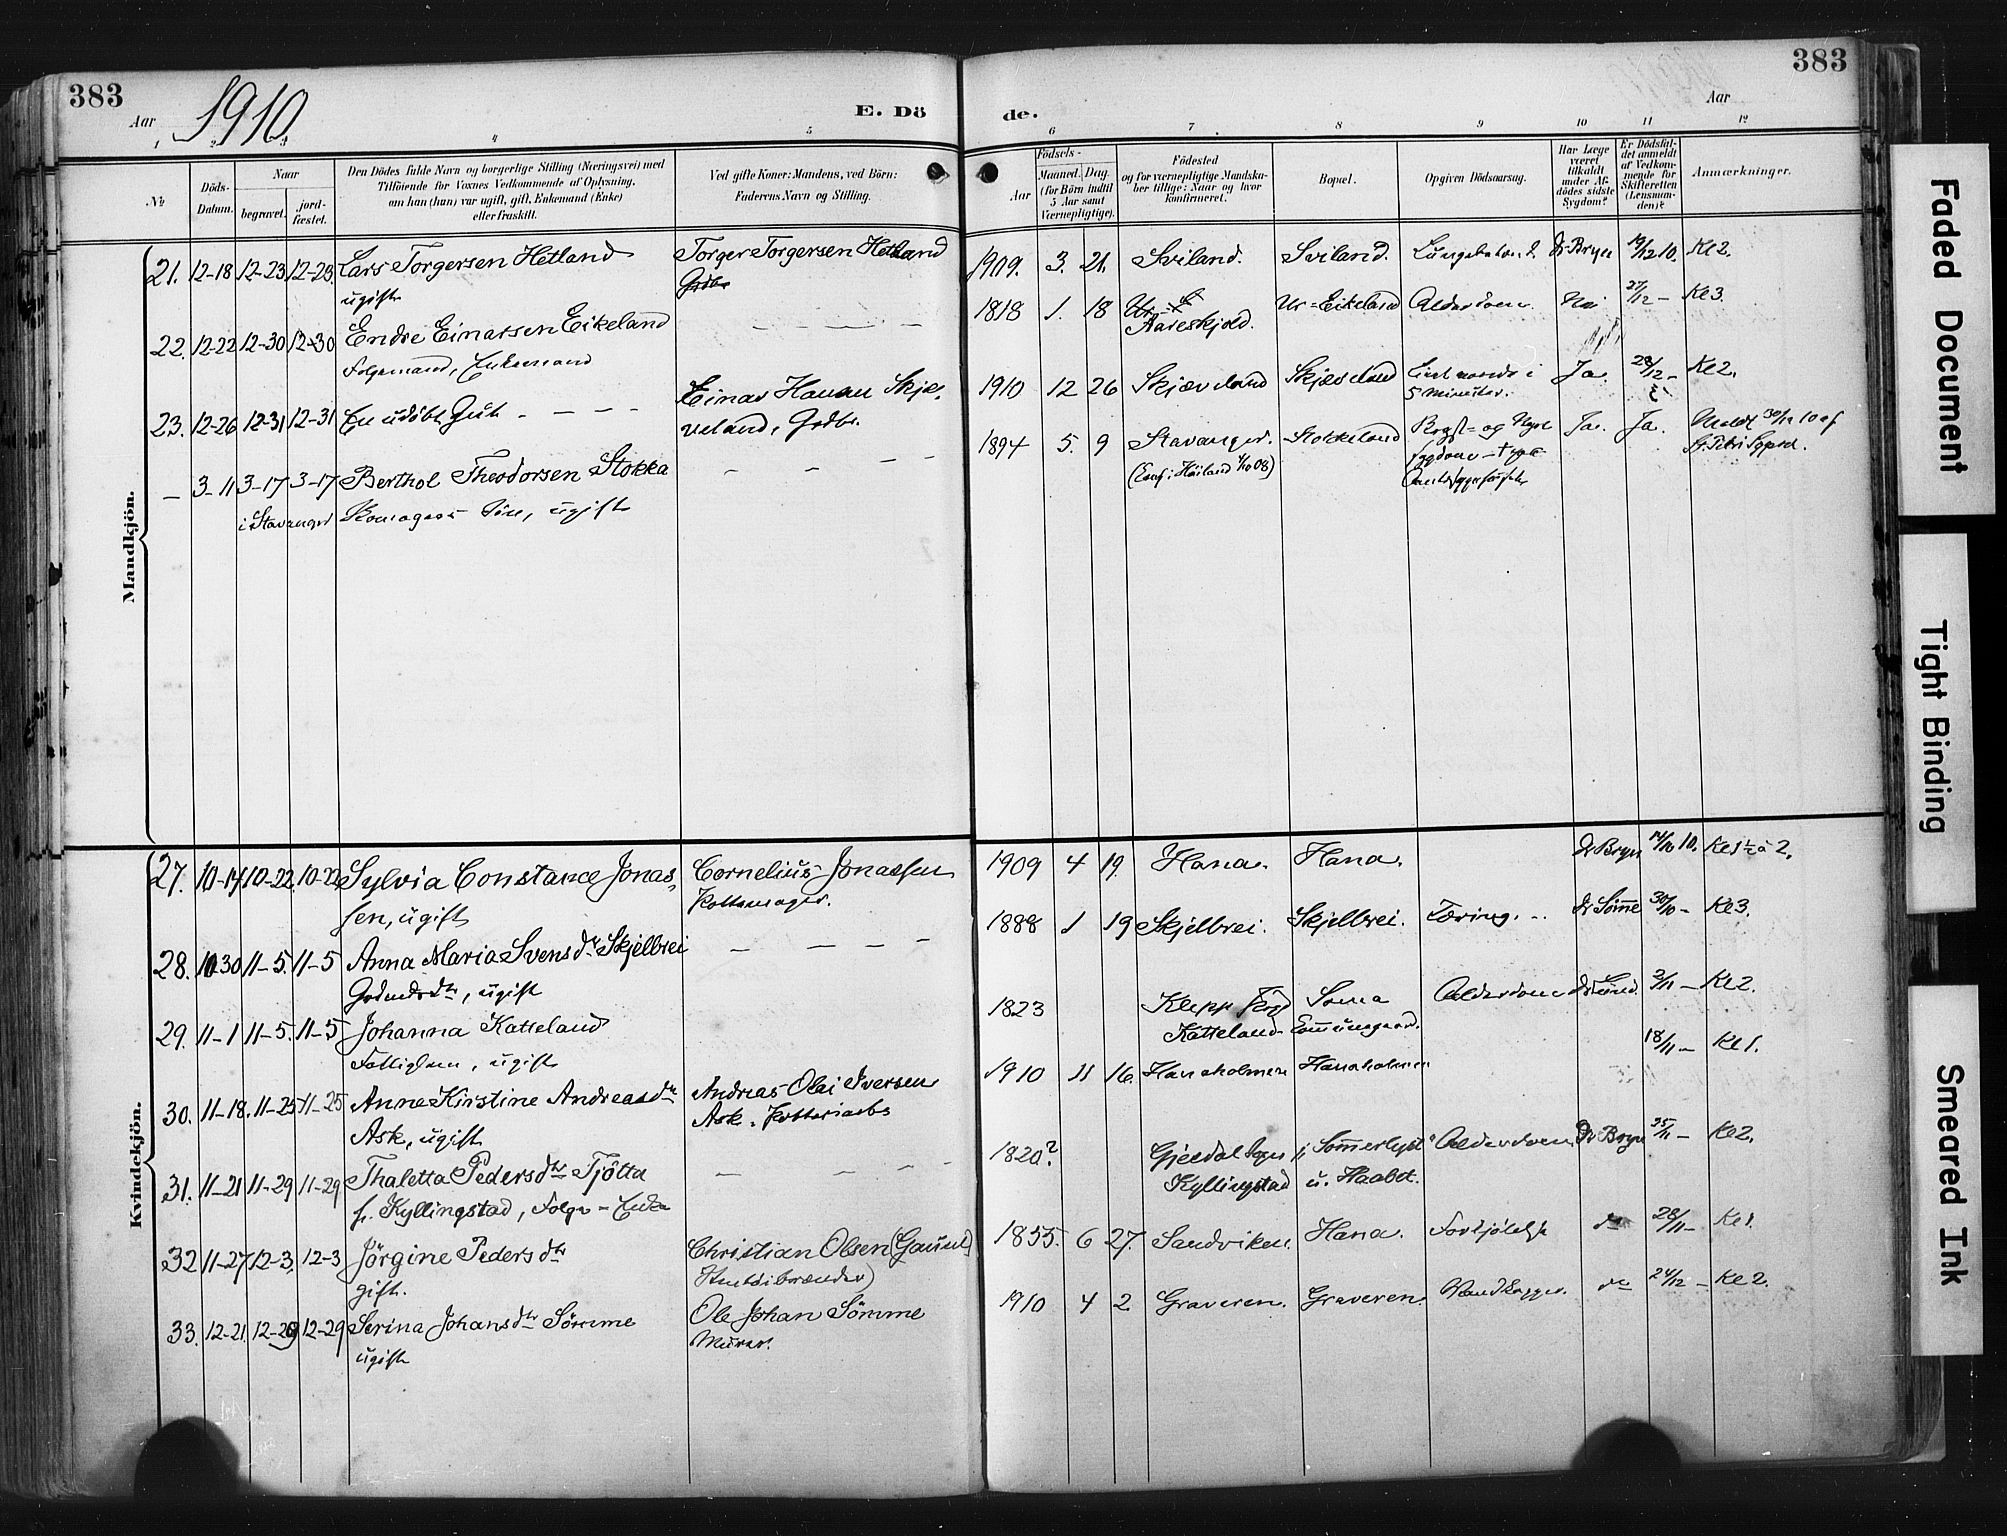 383
Aar
1910
E. Dö
de.
383
Aar
1 2 3 4 5
6 7 8 9 10 11 12
№
Döds-
Datum.
Naar
begravet.
jord-
fæstet.
Den Dödes fulde Navn og borgerlige Stilling (Næringsvei) med
Tilföiende for Voxnes Vedkommende af Oplysning,
om han (hun) var ugift, gift, Enkemand (Enke)
eller fraskilt.
Ved gifte Koner: Mandens, ved Börn:
Faderens Navn og Stilling.
Födsels-
Aar
Maaned.
Dag.
(for Börn indtil
5 Aar samt
Værnepligtige).
Födested
og for værnepligtige Mandska-
ber tillige: Naar og hvor
konfirmeret.
Bopæl.
Opgiven Dödsaarsag.
Har Læge
været
tilkaldt
under Af-
dödes sidste
Sygdom?
Er Dödsfal-
det anmeldt
af Vedkom-
mende for
Skifteretten
(Lensman-
den)?
Anmærkninger.
Mandkjön.
21. 12-18 12-23 12-23 Lars Torgersen Hetland Torger Torgersen Hetland 1909. 3. 21. Sviland. Sviland. Dr Bryn 19/12 10. Kl 2.
ugift
22. 12-22 12-30 12-30 Endre Einarsen Eikeland — — — — 1818 1. 18 Aareskjold. Ur-Eikeland Alderdom. Nei 27/12 - Kl 3.
Folgemand, Enkemand
23. 12-26 12-31 12-31 En udöbt Gut - — — - Einar Hanan Skjæ-
veland, Grdbr. 1910 12 26 Skjæveland Skjæveland i
5 Minuter. Ja. 28/12 - Kl 2.
— 3-11 3-17 3-17 Berthol Theodorsen Stokka — — — — 1894 5. 9 Stavanger. Stokkeland Bryst- og Ja. Ja. 30/12 10 af
i Stavanger Sön, ugift (Conf. i Höiland 1/10 08)
Kvindekjön.
27. 10-14 10-22 10-22 Sylvia Constance Jonas- Cornelius Jonassen 1909 4 19. Hana. Hana. Dr Bryn 14/10 10. Kl 1½ à 2.
sen, ugift Pottemager.
28. 10-30 11-5. 11-5 Anna Maria Svensdr Skjelbrei — — — — 1888 1 19 Skjelbrei. Skjelbrei. Tæring. Dr Sömme 30/10 - Kl 3.
Grdmdsdtr, ugift
29. 11-1 11-5. 11-5 Johanna Katteland 1823 Klepp Sogn Soma Alderdom 2/11 - Kl 2.
ugift Katteland
30. 11-18. 11-25 11-25 Anne Kirstine Andreasdtr Andreas Olai Iversen 1910 11 16. Hanaholmen Hanaholmen 18/11 - Kl 1.
Ask, ugift Ask. Potteriarb.
31. 11-21 11-29 11-29 Thaletta Pedersdtr Tjötta — — — — 1820? Gjesdal Sogn "Sommerlyst" Alderdom Dr Bryn 25/11 - Kl 2.
f. Kyllingstad, Folge-Enke Kyllingstad u. Haabet.
32 11-27 12-3. 12-3 Jörgine Pedersdtr Christian Olsen (Gausel) 1855. 6 27. Sandviken. Hana. Forkjölelse do 28/11 - Kl 1.
gift.
33. 12-21. 12-29 12-29 Serina Johansdtr Sömme Ole Johan Sömme 1910 4 2 Graveren. Graveren. Vandkopper. do 24/12 - Kl 2.
ugift Murer.
Faded Document
Tight Binding
Smeared Ink